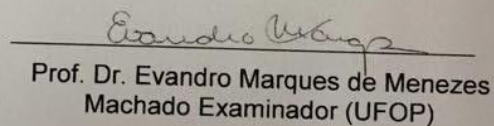 Evandro
Prof. Dr. Evandro Marques de Menezes
Machado Examinador (UFOP)